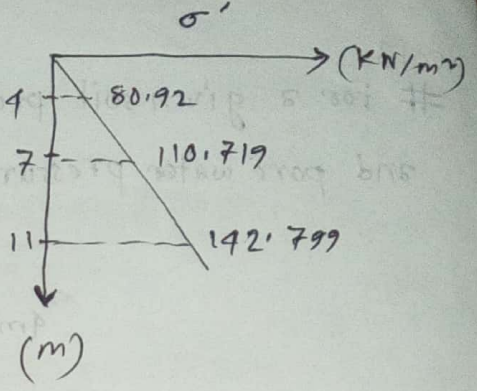 σ'
(KN/m²)
4 80.92
7 110.719
11 142.799
(m)